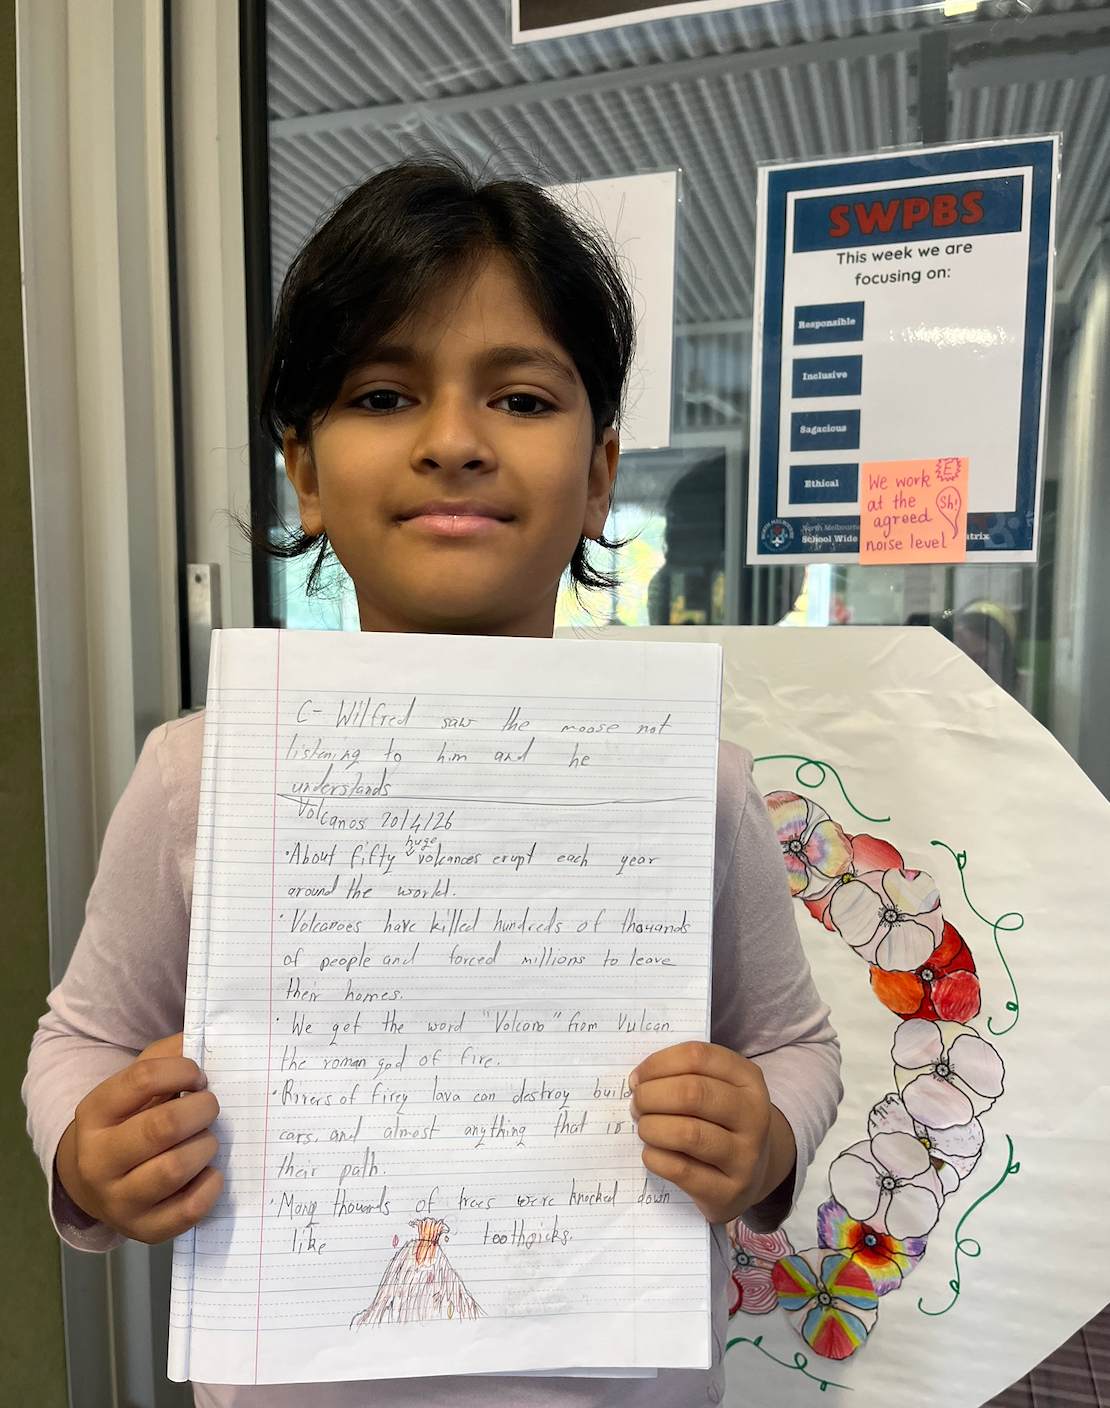 SWPBS
This week we are
focusing on:
Responsible
Inclusive
Sagacious
Ethical
We work
at the
agreed
noise level
E
Sh!
North Melbourne
School Wide
atrix
C- Wilfred saw the moose not
listening to him and he
understands
Volcanos 20/4/26
huge
·About fifty volcanoes erupt each year
around the world.
·Volcanoes have killed hundreds of thouands
of people and forced millions to leave
their homes.
·We get the word "Volcano" from Vulcan
the roman god of fire.
·Rivers of firey lava can destroy build
cars, and almost anything that is i
their path.
·Many thouands of trees were knocked down
like toothpicks.